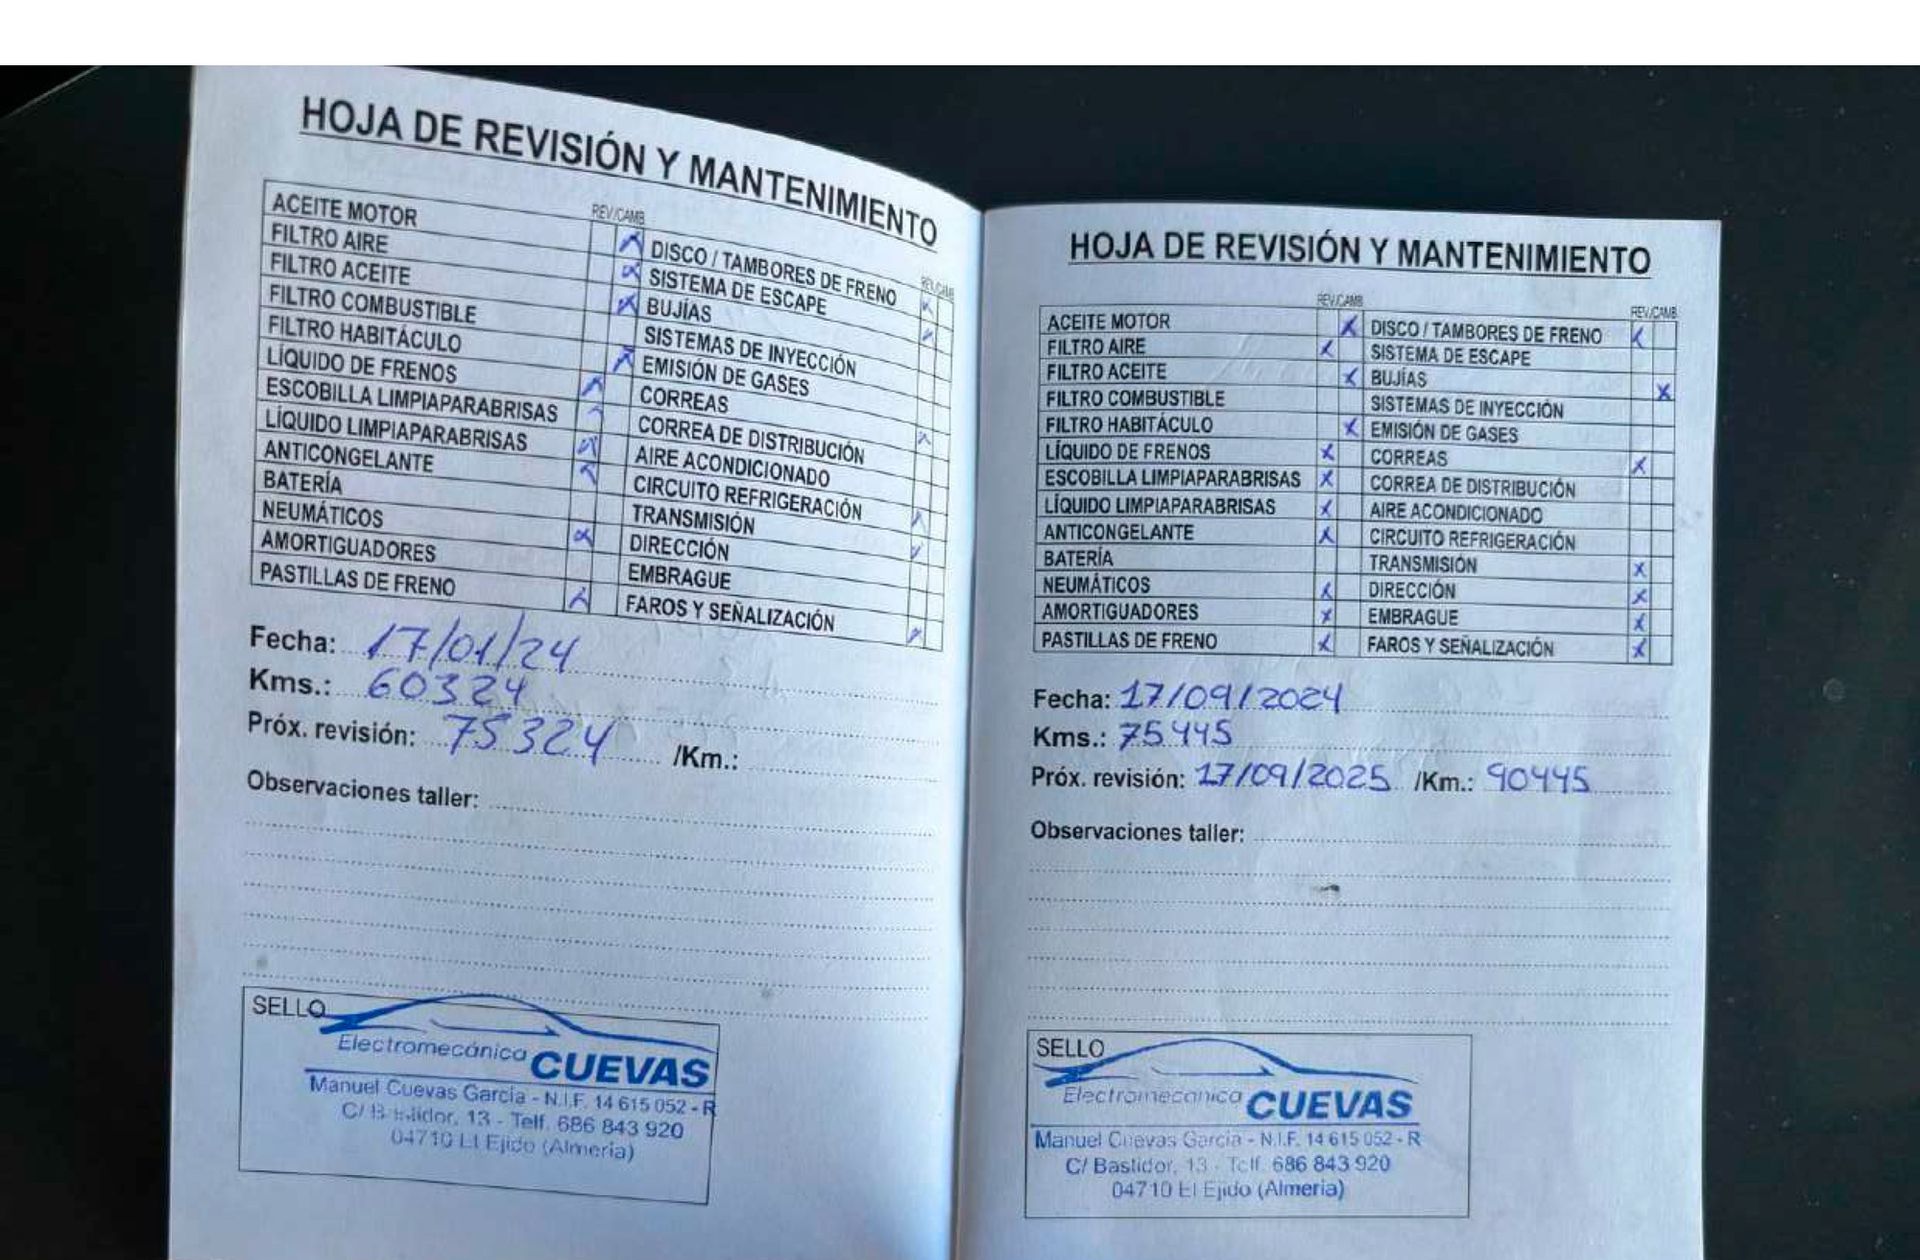 HOJA DE REVISIÓN Y MANTENIMIENTO
REV./CAMB.
REV./CAMB.
ACEITE MOTOR
FILTRO AIRE
FILTRO ACEITE
FILTRO COMBUSTIBLE
FILTRO HABITÁCULO
LÍQUIDO DE FRENOS
ESCOBILLA LIMPIAPARABRISAS
LÍQUIDO LIMPIAPARABRISAS
ANTICONGELANTE
BATERÍA
NEUMÁTICOS
AMORTIGUADORES
PASTILLAS DE FRENO
DISCO / TAMBORES DE FRENO
SISTEMA DE ESCAPE
BUJÍAS
SISTEMAS DE INYECCIÓN
EMISIÓN DE GASES
CORREAS
CORREA DE DISTRIBUCIÓN
AIRE ACONDICIONADO
CIRCUITO REFRIGERACIÓN
TRANSMISIÓN
DIRECCIÓN
EMBRAGUE
FAROS Y SEÑALIZACIÓN
Fecha: 17/01/24
Kms.: 60324
Próx. revisión: 75324 /Km.:
Observaciones taller:
SELLO
Electromecánica CUEVAS
Manuel Cuevas García - N.I.F. 14 615 052 - R
C/ Bastidor, 13 - Telf. 686 843 920
04710 El Ejido (Almería)
HOJA DE REVISIÓN Y MANTENIMIENTO
REV./CAMB.
REV./CAMB.
ACEITE MOTOR
FILTRO AIRE
FILTRO ACEITE
FILTRO COMBUSTIBLE
FILTRO HABITÁCULO
LÍQUIDO DE FRENOS
ESCOBILLA LIMPIAPARABRISAS
LÍQUIDO LIMPIAPARABRISAS
ANTICONGELANTE
BATERÍA
NEUMÁTICOS
AMORTIGUADORES
PASTILLAS DE FRENO
DISCO / TAMBORES DE FRENO
SISTEMA DE ESCAPE
BUJÍAS
SISTEMAS DE INYECCIÓN
EMISIÓN DE GASES
CORREAS
CORREA DE DISTRIBUCIÓN
AIRE ACONDICIONADO
CIRCUITO REFRIGERACIÓN
TRANSMISIÓN
DIRECCIÓN
EMBRAGUE
FAROS Y SEÑALIZACIÓN
Fecha: 17/09/2024
Kms.: 75445
Próx. revisión: 17/09/2025 /Km.: 90445
Observaciones taller:
SELLO
Electromecánica CUEVAS
Manuel Cuevas García - N.I.F. 14 615 052 - R
C/ Bastidor, 13 - Telf. 686 843 920
04710 El Ejido (Almería)